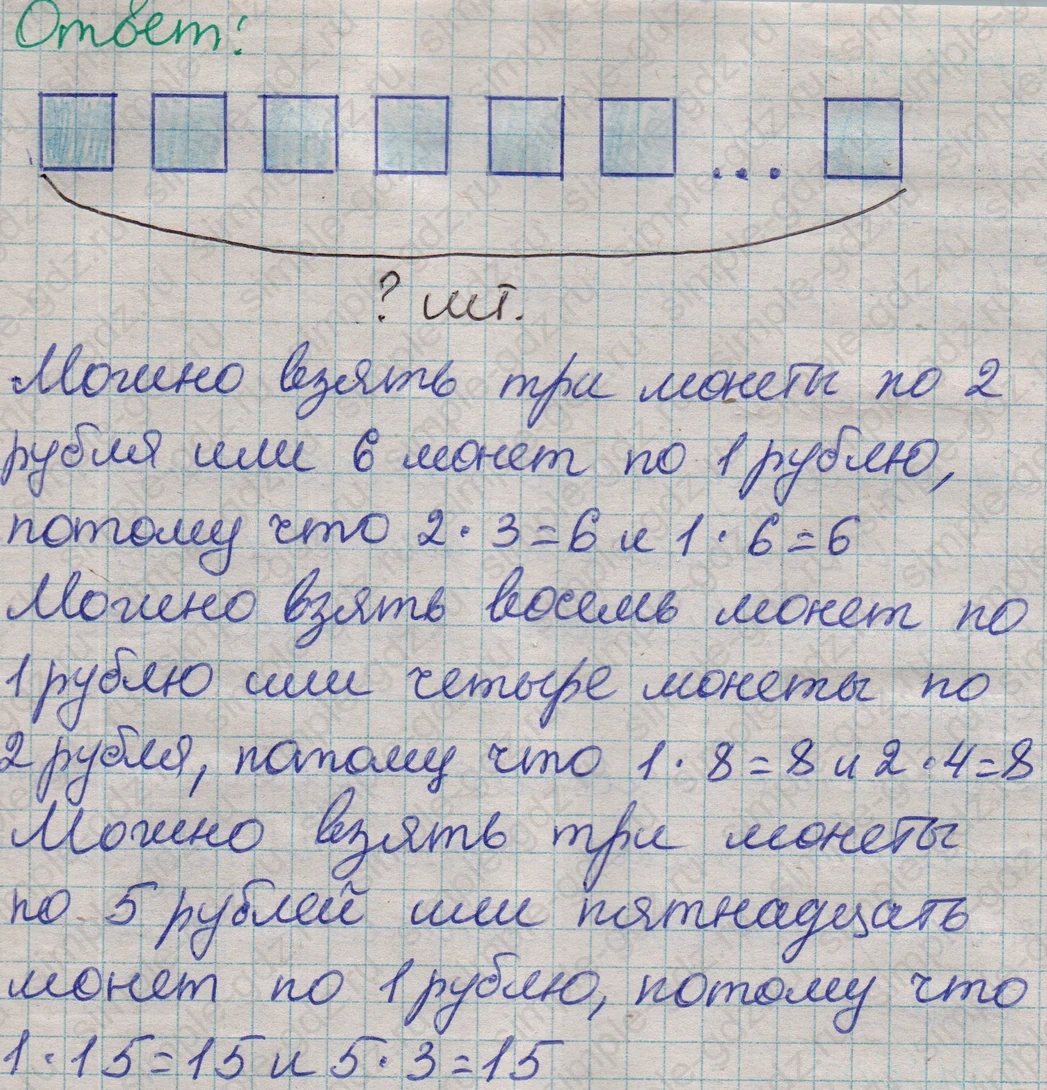 Ответ:
...
? шт.
Можно взять три монеты по 2
рубля или 6 монет по 1 рублю,
потому что 2·3=6 и 1·6=6
Можно взять восемь монет по
1 рублю или четыре монеты по
2 рубля, потому что 1·8=8 и 2·4=8
Можно взять три монеты
по 5 рублей или пятнадцать
монет по 1 рублю, потому что
1·15=15 и 5·3=15
simple-gdz.ru